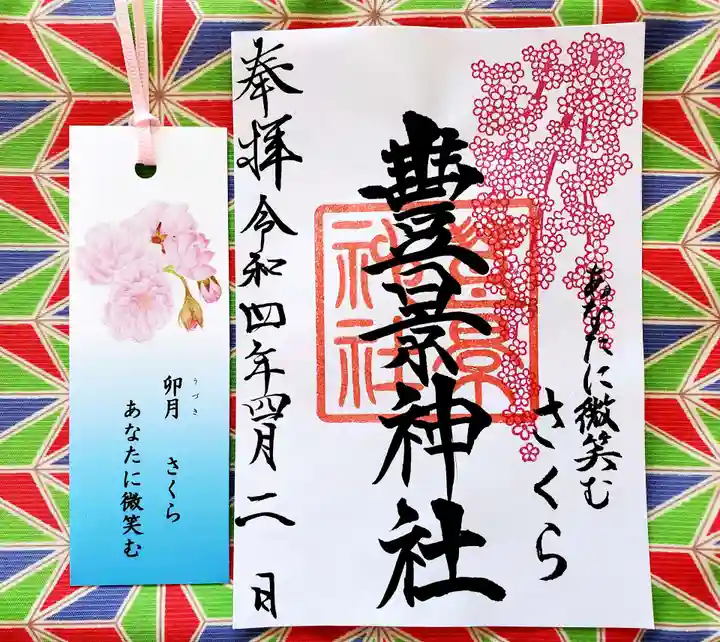 あなたに微笑む
さくら
豊景神社
豊景神社
奉拝 令和四年四月二日
卯月 さくら
うづき
あなたに微笑む